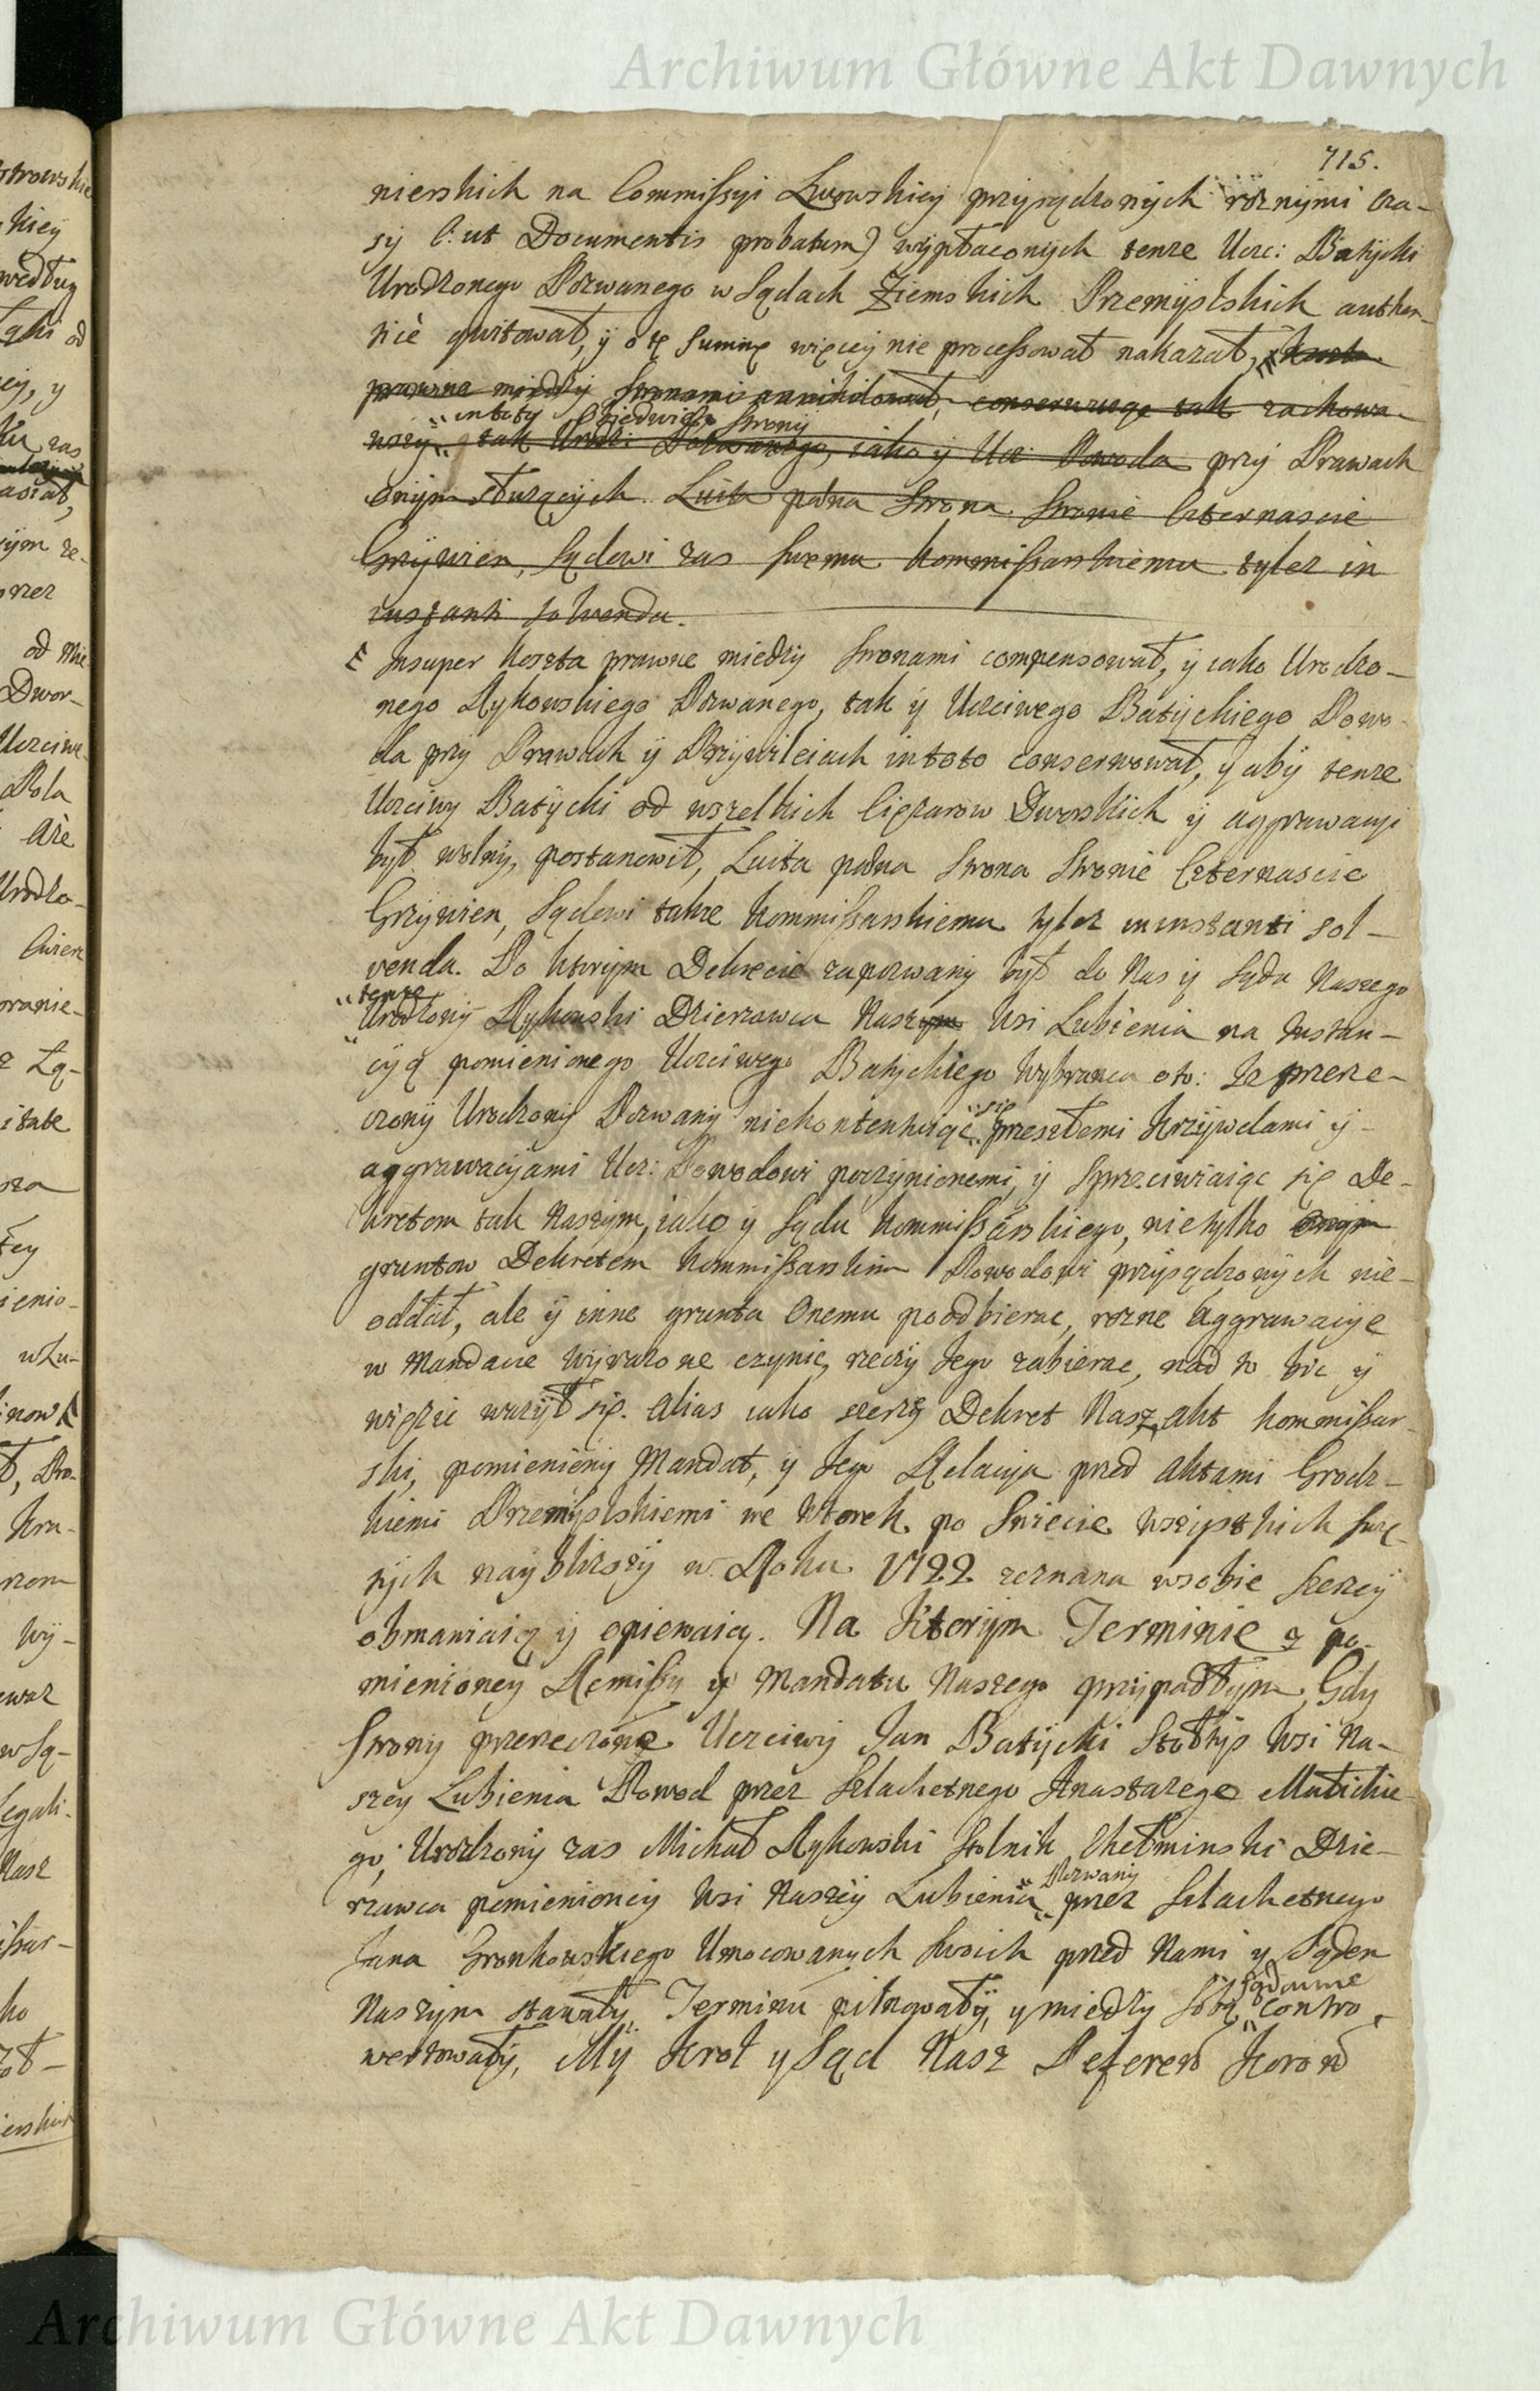 Archiwum Główne Akt Dawnych
715.
nierskich na Commissyi Lwowskiey przysądzonych róznymi cza-
sy (: ut Documentis probatum) wypłaconych tenze Ucz: Batycki
Urodzonego Pozwanego w Sądach Ziemskich Przemyslskich authen-
ticè quitował, ÿ o tę summę więcey nie processował nakazał, koszta
prawne między stronami annihilował, conserwuiąc tak zachowa-
in toto Obiedwie Strony
wszy tak Urodz: Pozwanego, iako ÿ Ucz: Powoda przy Prawach
onym słuzących. Luita pœna Strona Stronie Czternascie
Grzywien, Sądowi zas swemu Kommissarskiemu tylez in
instanti solvenda.
Insuper koszta prawne między Stronami compensował, ÿ iako Urodzo-
nego Rykowskiego Pozwanego, tak ÿ Uczciwego Batyckiego Powo-
da przy Prawach ÿ Przywileiach in toto conserwował, y aby tenze
Uczciwy Batycki od wszelkich Ciężarow Dworskich ÿ aggrawacyi
był wolny, postanowił, Luita pœna Strona Stronie Czternascie
Grzywien, Sądowi takze Kommissarskiemu tylez in instanti sol-
venda. Po ktorym Dekrecie zapozwany był do Nas ÿ Sądu Naszego
tenze
Urodzony Rykowski Dzierzawca Naszey Wsi Lubienia na Instan-
cyą pomienionego Uczciwego Batyckiego Wybranca oto: Iz przere-
czony Urodzony Pozwany niekontentuiąc się przeszłemi Krzywdami ÿ
aggrawacyiami Ucz: Powodowi poczynionemi, ÿ sprzeciwiaiąc się De-
kretom tak Naszym, iako ÿ Sądu Kommissarskiego, nietylko onym
gruntow Dekretem Kommissarskim Powodowi przysądzonych nie-
oddał, ale ÿ inne grunta Onemu poodbierac, rozne Aggrawacye
w Mandacie wyrazone czynic, rzeczy Jego zabierac, nad to bic ÿ
więzic wazył się. Alias iako szerzy Dekret Nasz, Akt Kommissar-
ski, pomieniony Mandat, y Jego Relacya przed Aktami Grodz-
kiemi Przemyslskiemi we Wtorek po Swiecie Wszystkich Swię-
tych nayblizszy w Roku 1722 zeznana wsobie szerzey
obmawiaią ÿ opiewaią. Na Ktorym Terminie z po-
mienioney Remissy ÿ Mandatu Naszego przypadłym, Gdy
Strony przereczone Uczciwy Jan Batycki Sołtys Wsi Na-
szey Lubienia Powod przez Szlachetnego Anastazego Malickie-
go; Urodzony zas Michał Rykowski Stolnik Chełminski Dzie-
rzawca pomienioney Wsi Naszey Lubienia Pozwany przez Szlachetnego
Jana Gronkowskiego Umocowanych swoich przed Nami y Sądem
Naszym stawały, Terminu pilnowały, y miedzy sobą sądownie contro-
wertowały, My Krol y Sąd Nasz Referen Koron
Archiwum Główne Akt Dawnych